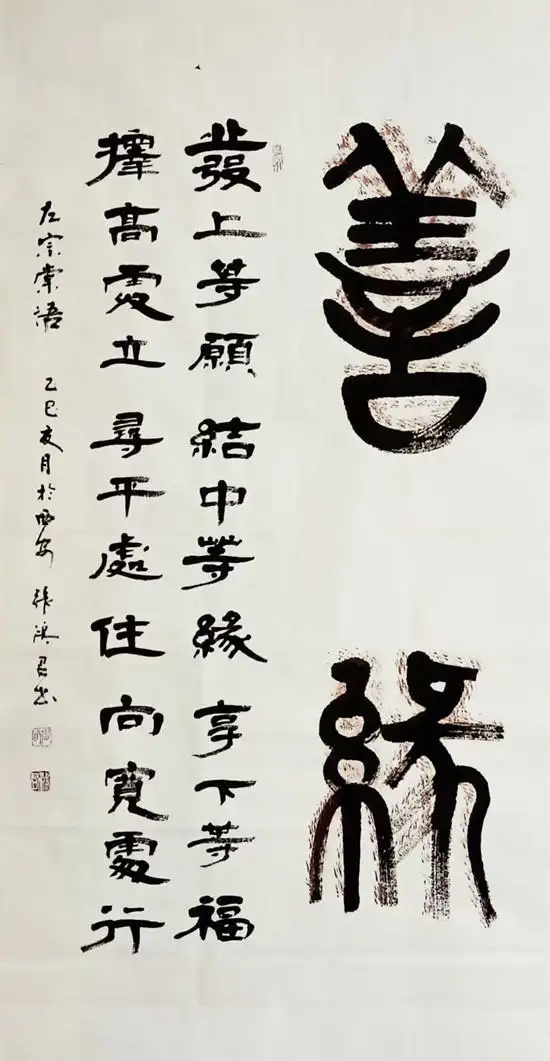 善緣
發上等願結中等緣享下等福
擇高處立尋平處住向寬處行
左宗棠語 乙巳夏月於西安 張君书